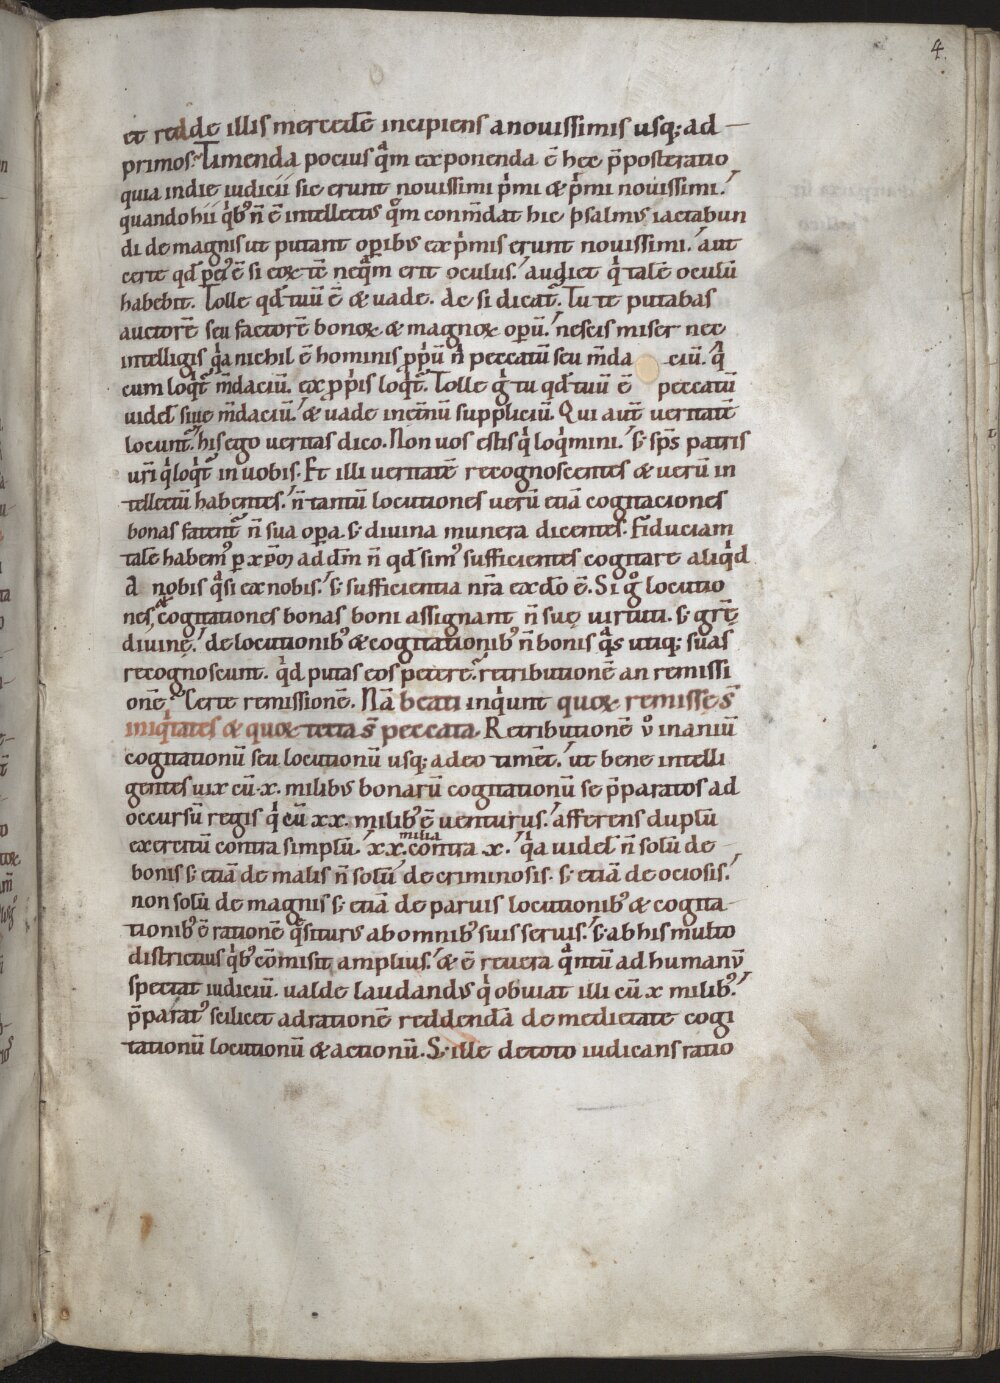 4
et redde illis mercedē incipiens a nouissimis usq; ad
primos. Timenda pocius q̄m exponenda ē hec p̄posteratio
quia in die iudicii sic erunt nouissimi p̍mi & p̍mi nouissimi.
quando hii q̍bꝰ n̄ ē intellectus q°m conm̄dat hic psalmus iactabun
di de magnis ut putant op̲ibus ex p̍mis erunt nouissimi. aut
certe qd̄ p̲ci ē si eoꝝ tē neq̄m erit oculus. audiet q̍ talē oculū
habebit. Tolle qd̄ tuū ē & uade. Ac si dicat᷑. Tu te putabas
auctorē seu factorē bonoꝝ & magnoꝝ op̲ū. nescis miser nec
intelligis q̍a nichil ē hominis pp̍ū n̍ peccatū seu m̄da ciū. q̍
cum loq̍t᷑ m̄daciū. ex pp̍is loq̍t᷑. Tolle g̍ tu qd̄ tuū ē peccatū
uidel̄ siue m̄daciū. & uade in et̄nū suppliciū. Qui aut̄ ueritatē
locunt᷑. his ego ueritas dico. Non uos estis q̍ loq̍mini. s; sp̄s patris
ur̄i q̍ loq̍t᷑ in uobis. Et illi ueritatē recognoscentes & uerū in
tellectū habentes. n̄ tantū locutiones uerū etiā cogitaciones
bonas fatent᷑ n̄ sua op̲a. s; diuina munera dicentes. Fiduciam
talē habemꝰ p̲ xp̄m ad dm̄ n̄ qd̄ simꝰ sufficientes cogitare aliq̍d
A nobis q̄si ex nobis. s; sufficientia nr̄a ex dō ē. Si g° locutio
nes & cogitationes bonas boni assignant n̄ suę uirtuti. s; gr̄ę
diuinę. de locutionibꝰ & cogitationibꝰ n̄ bonis q̄s utiq; suas
recognoscunt. q̍d putas eos petere. retributionē an remissi
onē. Certe remissionē. Nā beati inq̍unt quoꝝ remisse s̄
iniq̍tates & quoꝝ tecta s̄ peccata. Retributionē u° inaniū
cogitationū seu locutionū usq; adeo timēt. ut bene intelli
gentes uix cū .x. milibus bonarū cogitationū se p̄paratos ad
occursū regis q̍ cū xx. milibꝰ ē uenturus. afferens duplū
exercitū contra simplū. xx. milia contra .x. q̍a uidel̄ n̄ solū de
bonis s; etiā de malis n̄ solū de criminosis. s; etiā de ociosis.
non solū de magnis s; etiā de paruis locutionibꝰ & cogita
tionibꝰ ē rationē q̄siturus ab omnibꝰ suis seruis. s; ab his multo
districtius q̍bꝰ cōmisit amplius. & ē reuera q̄ntū ad humanū
spectat iudiciū. ualde laudandus q̍ obuiat illi cū x milibꝰ.
p̄paratꝰ scilicet ad rationē reddendā de medietate cogi
tationū locutionū & actionū. S; ille de toto iudicans ratio